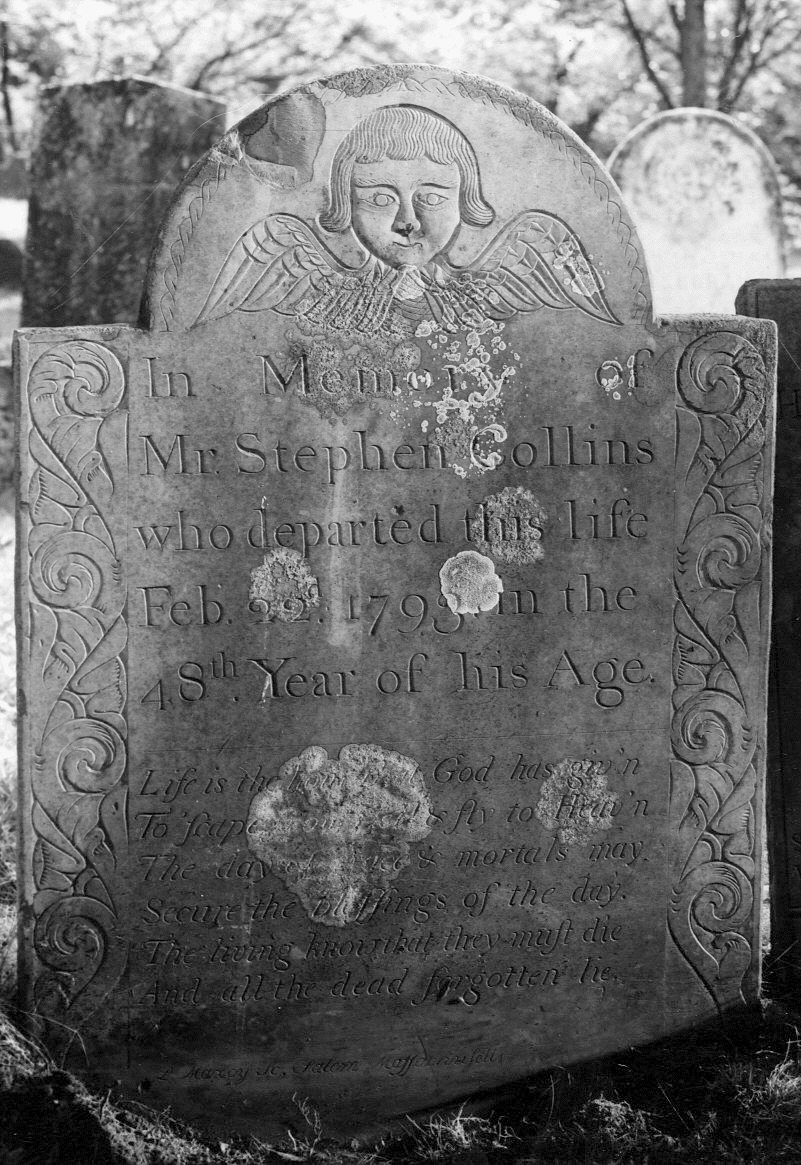 In Memory of
Mr. Stephen Collins
who departed this life
Feb. 22. 1793 in the
48th Year of his Age.
Life is the God has giv'n
To 'scape & fly to Heav'n
The day of & mortals may
Secure the blessings of the day.
The living know that they must die
And all the dead forgotten lie.
Salem Massachusetts